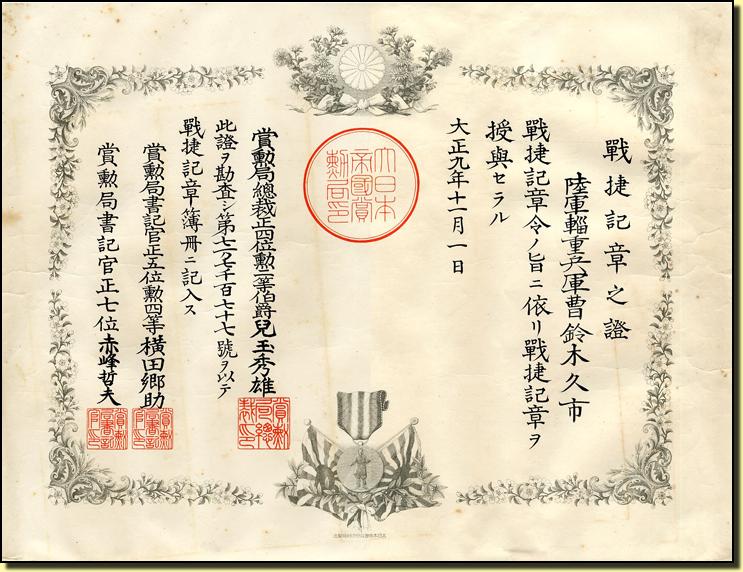 戰捷記章之證
陸軍輜重兵軍曹鈴木久市
戰捷記章令ノ旨ニ依リ戰捷記章ヲ
授與セラル
大正九年十一月一日
大日本
帝國賞
勲局印
賞勲局總裁正四位勲一等伯爵兒玉秀雄
此證ヲ勘査シ第七万七千百七十七號ヲ以テ
戰捷記章簿冊ニ記入ス
賞勲局書記官正五位勲四等横田郷助
賞勲局書記官正七位赤峰哲夫